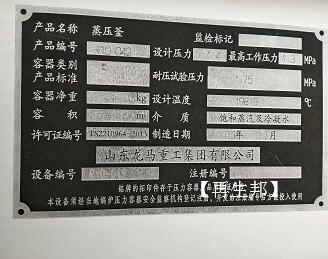 产品名称 蒸压釜 监检标记
产品编号 310-042 设计压力 最高工作压力 1.3 MPa
容器类别
产品标准 耐压试验压力 .75 MPa
容器净重 kg 设计温度 198.3 ℃
容积 饱和蒸汽及冷凝水
许可证编号 TS2210964-2013 制造日期 年 月
山东龙马重工集团有限公司
设备编号 注册编号
铭牌的拓印件存于压力容器
本设备须经当地锅炉压力容器安全监察机构登记注册 投入使用
【再生邦】